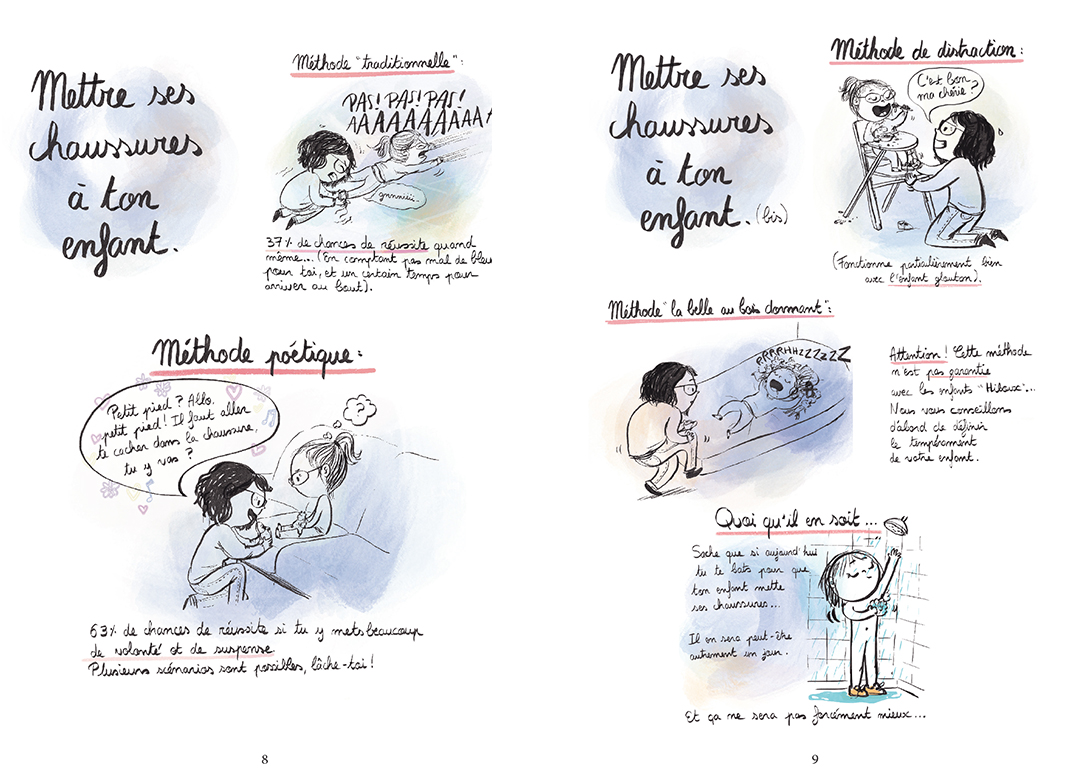 Mettre ses
chaussures
à ton
enfant.
Méthode "traditionnelle":
PAS! PAS! PAS!
AAAAAAAAAAA
gnnniii.
37% de chances de réussite quand
même... (En comptant pas mal de bleu
pour toi, et un certain temps pour
arriver au bout).
Méthode poétique:
Petit pied? Allo.
petit pied! Il faut aller
te cacher dans la chaussure,
tu y vas?
?
63% de chances de réussite si tu y mets beaucoup
de volonté et de suspense.
Plusieurs scénarios sont possibles, lâche-toi!
8
Mettre ses
chaussures
à ton
enfant. (bis)
Méthode de distraction:
C'est bon
ma chérie?
(Fonctionne particulièrement bien
avec l'enfant glouton).
Méthode "la belle au bois dormant":
RRRRHHZZZZZZ
Attention! Cette méthode
n'est pas garantie
avec les enfants "Hiboux"...
Nous vous conseillons
d'abord de définir
le tempérament
de votre enfant.
Quoi qu'il en soit...
Sache que si aujourd'hui
tu te bats pour que
ton enfant mette
ses chaussures...
Il en sera peut-être
autrement un jour.
Et ça ne sera pas forcément mieux...
9